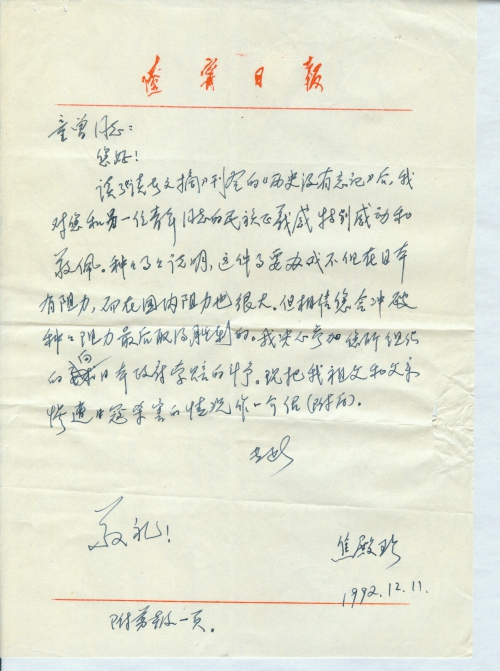 辽宁日报
童曾同志:
您好!
读了《读者文摘》刊登的《历史没有忘记》后,我
对您和另一位青年同志的民族正义感特别感动和
敬佩。种种事情说明,这件事要办成不但在日本
有阻力,而在国内阻力也很大。但相信您会冲破
种种阻力最后取得胜利的。我决心参加您所组织
的向日本政府索赔的斗争。现把我祖父和父亲
惨遭日寇杀害的情况作一介绍(附后)。
此致
敬礼!
焦殿
1992.12.11.
附剪报一页。